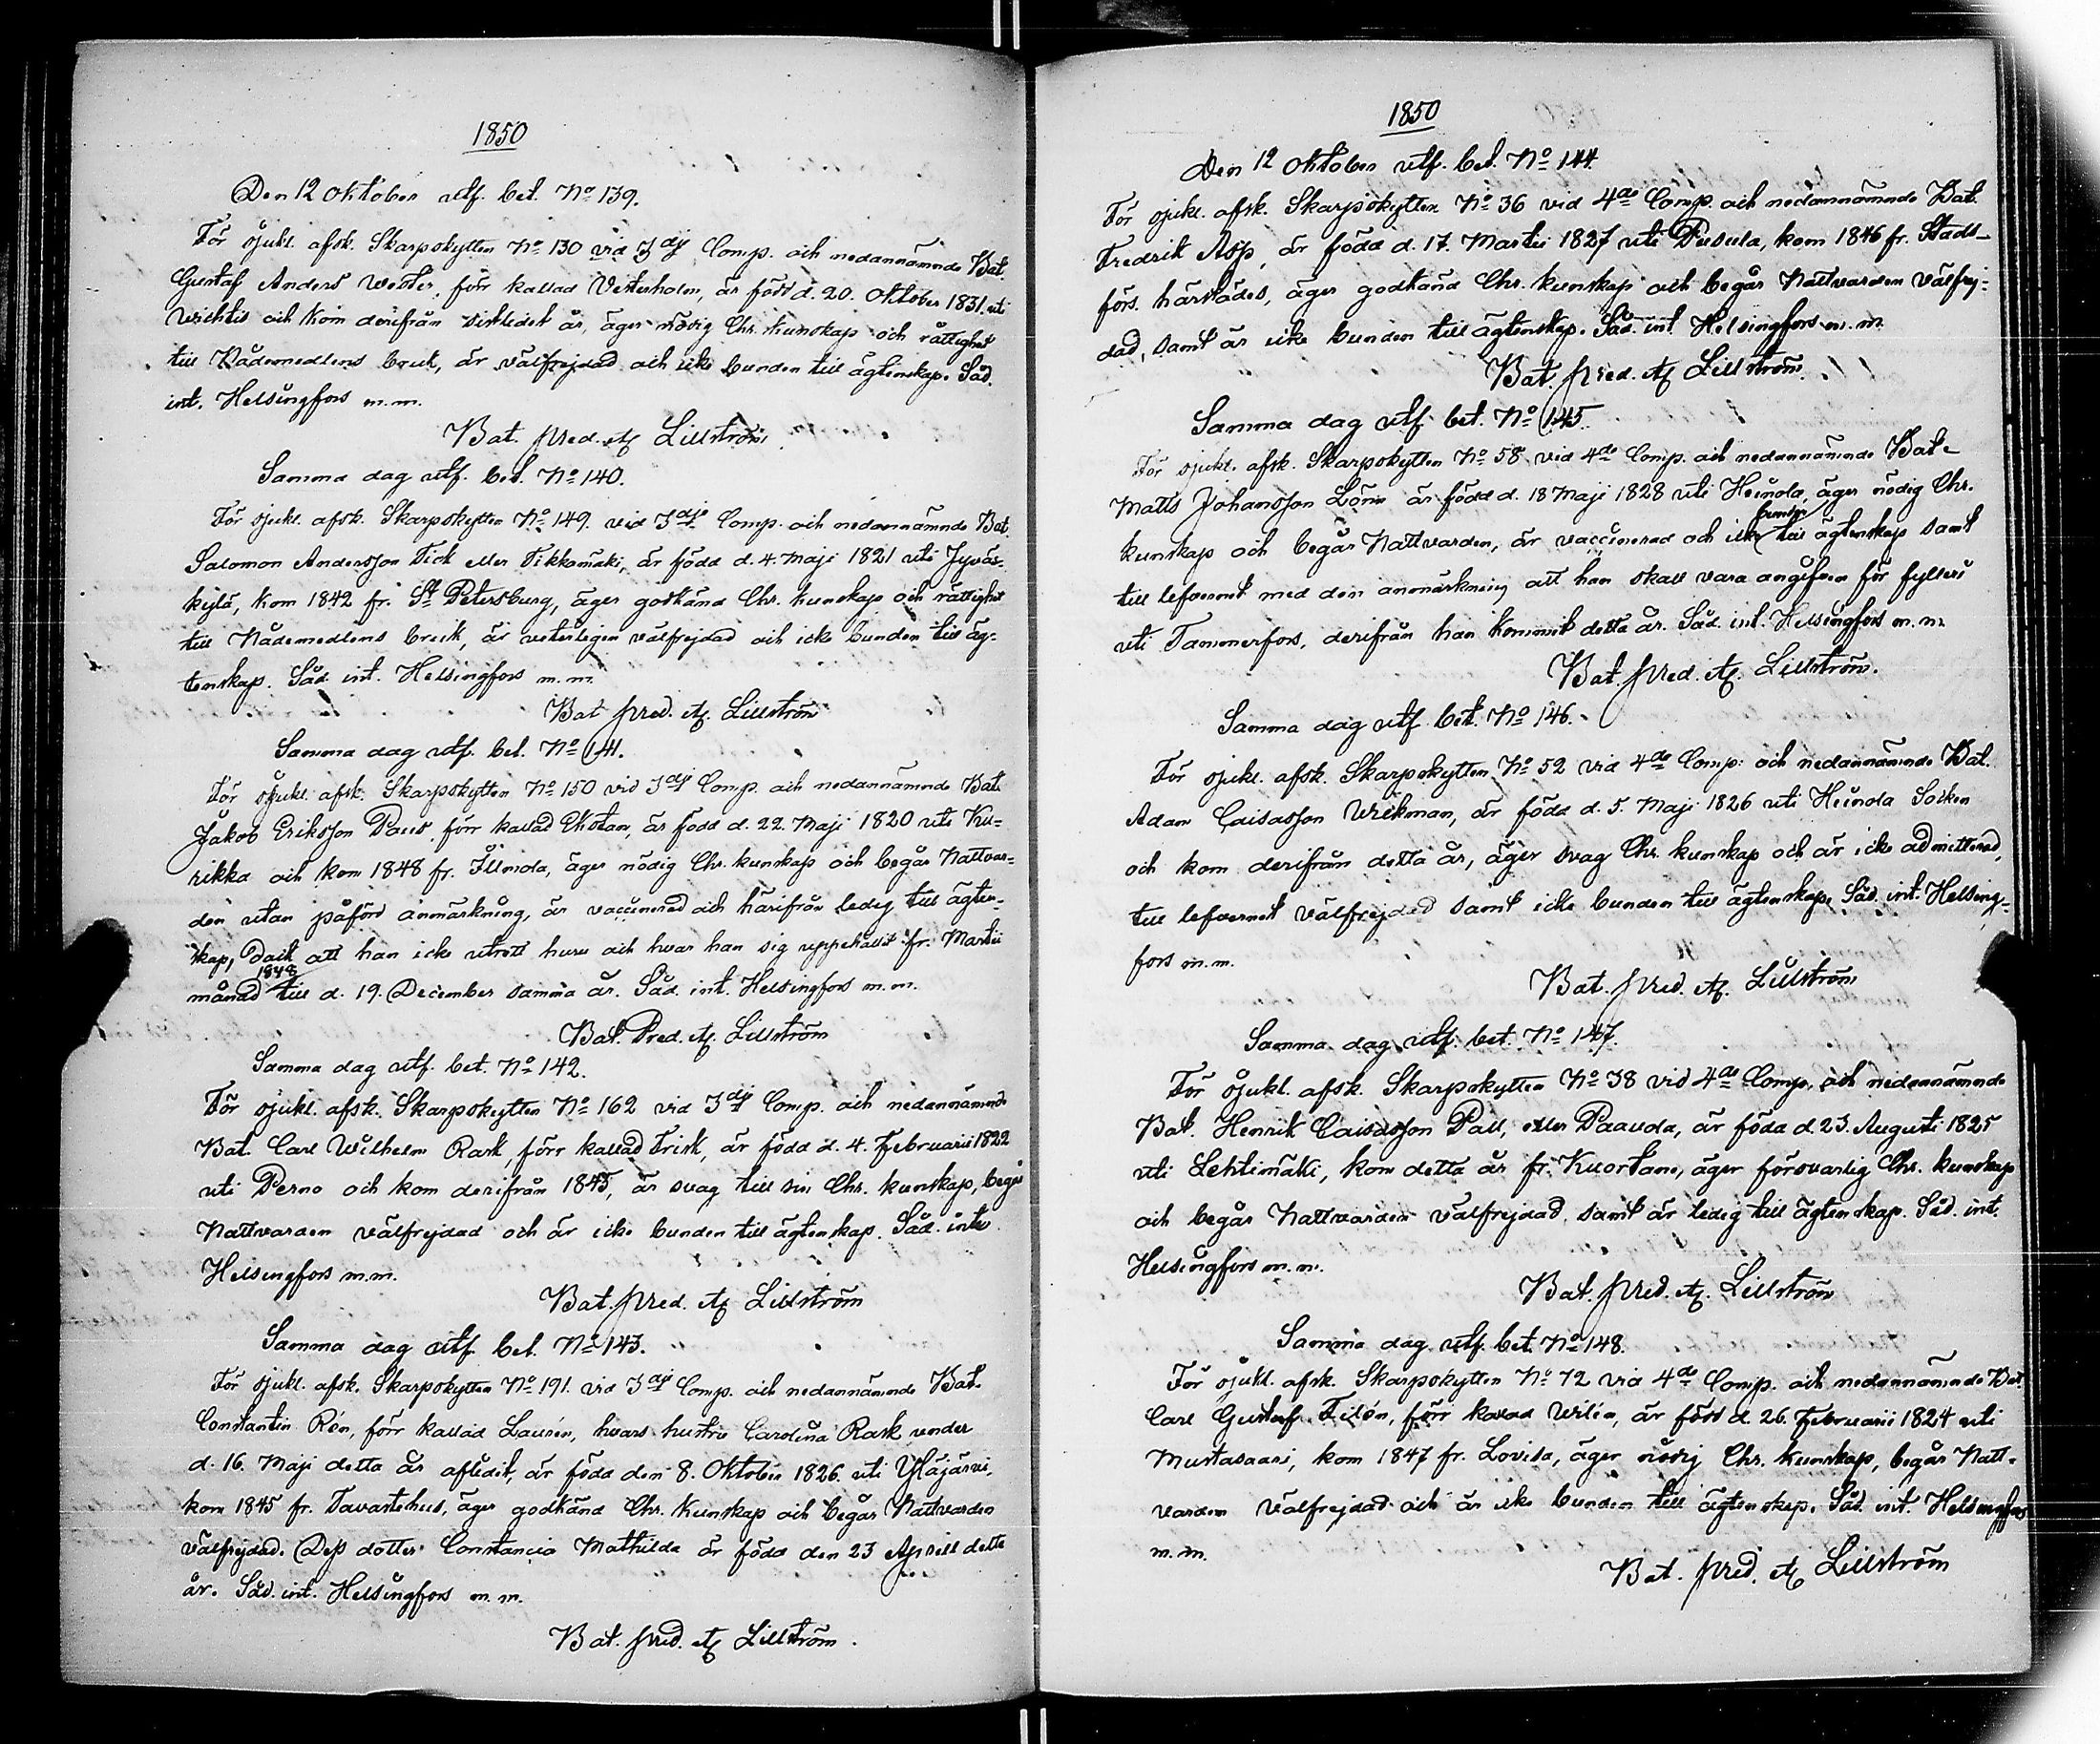 1850
Den 12 Oktober utf. bet. No 139.
För sjukl. afsk. Skarpskytten No 130 vid 3dje Comp. och nedannämnde Bat.
Gustaf Anders Wester, förr kallad Vesterholm, är född d. 20. Oktober 1831. uti
Wichtis och kom derifrån sistledet år, äger nödig Chr. kunskap och rättighet
till Nådemedlens bruk, är välfrejdad och icke bunden till ägtenskap. Såd.
int. Helsingfors m.m.
Bat. pred. Af Lillström.
Samma dag utf. bet. No 140.
För sjukl. afsk. Skarpskytten No 149. vid 3dje Comp. och nedannämnde Bat.
Salomon Andersson Tick eller Tikkamäki, är född d. 4. Maji 1821 uti Jyväs-
kylä, kom 1842 fr. St Petersburg, äger godkänd Chr. kunskap och rättighet
till Nådemedlens bruk, är veterligen välfrejdad och icke bunden till äg-
tenskap. Såd. int. Helsingfors m.m.
Bat pred. Af. Lillström
Samma dag utf. bet. No 141.
För sjukl. afsk. Skarpskytten No 150 vid 3dje Comp. och nedannämnde Bat.
Jakob Eriksson Paus, förr kallad Skotam, är född d. 22. Maji 1820 uti Ku-
rikka och kom 1848 fr. Ilmola, äger nödig Chr. kunskap och begår Nattvar-
den utan påförd anmärkning, är vaccinerad och härifrån ledig till ägten-
skap, dock att han icke utrett huru och hvar han sig uppehållit fr. Martii
månad 1848 till d. 19. December samma år. Såd. int. Helsingfors m.m.
Bat. Pred. Af. Lillström
Samma dag utf. bet. No 142.
För sjukl. afsk. Skarpskytten No 162 vid 3dje Comp. och nedannämnde
Bat. Carl Wilhelm Rask, förr kallad Frisk, är född d. 4. Februarii 1822
uti Perno och kom derifrån 1845, är svag till sin Chr. kunskap, begår
Nattvarden välfrejdad och är icke bunden till ägtenskap. Såd. int.
Helsingfors m.m.
Bat. pred. Af Lillström
Samma dag utf bet. No 143.
För sjukl. afsk. Skarpskytten No 191. vid 3dje Comp. och nedannämnde Bat.
Constantin Rén, förr kallad Laurén, hvars hustru Carolina Rask under
d. 16. Maji detta år aflidit, är född den 8. Oktober 1826. uti Ylöjärvi,
kom 1845 fr. Tavastehus, äger godkänd Chr. Kunskap och begår Nattvarden
välfrejdad. Dess dotter Constancia Mathilda är född den 23 April detta
år. Såd. int. Helsingfors m.m.
Bat. pred. Af Lillström.
1850
Den 12 Oktober utf. bet. No 144.
För sjukl. afsk. Skarpskytten No 36 vid 4de Comp. och nedannämnde Bat.
Fredrik Asp, är född d. 17. Martii 1827 uti Pusula, kom 1846 fr. Stads-
förs. härstädes, äger godkänd Chr. kunskap och begår Nattvarden välfrej-
dad, samt är icke bunden till ägtenskap. Såd. int. Helsingfors m.m.
Bat. pred. Af Lillström.
Samma dag utf. bet. No 145.
För sjukl. afsk. Skarpskytten No 58 vid 4de Comp. och nedannämnde Bat.
Matts Johansson Lönn är född d. 18 Maji 1828 uti Heinola, äger nödig Chr.
kunskap och begår Nattvarden, är vaccinerad och icke bunden till ägtenskap samt
till lefvernet med den anmärkning att han skall vara angifven för fylleri
uti Tammerfors, derifrån han kommit detta år. Såd. int. Helsingfors m.m.
Bat. pred. Af. Lillström.
Samma dag utf. bet. No 146.
För sjukl. afsk. Skarpskytten No 52 vid 4de Comp. och nedannämnde Bat.
Adam Caisasson Wickman, är född d. 5. Maji 1826 uti Heinola Socken
och kom derifrån detta år, äger svag Chr. kunskap och är icke admitterad,
till lefvernet välfrejdad samt icke bunden till ägtenskap. Såd. int. Helsing-
fors m.m.
Bat. pred. Af. Lillström
Samma dag utf. bet. No 147.
För sjukl. afsk. Skarpskytten No 38 vid 4de Comp. och nedannämnde
Bat. Henrik Caisasson Pall, eller Paavola, är född d. 23. Augusti 1825
uti Lehtimäki, kom detta år fr. Kuortane, äger försvarlig Chr. kunskap
och begår Nattvarden välfrejdad, samt är ledig till ägtenskap. Såd. int.
Helsingfors m.m.
Bat. pred. Af. Lillström
Samma dag utf. bet. No 148.
För sjukl. afsk. Skarpskytten No 72 vid 4de Comp. och nedannämnde Bat.
Carl Gustaf Filén, förr kallad Wilén, är född d. 26. Februarii 1824 uti
Mustasaari, kom 1847 fr. Lovisa, äger nödig Chr. kunskap, begår Natt-
varden välfrejdad och är icke bunden till ägtenskap. Såd. int. Helsingfors
m.m.
Bat. pred. Af Lillström